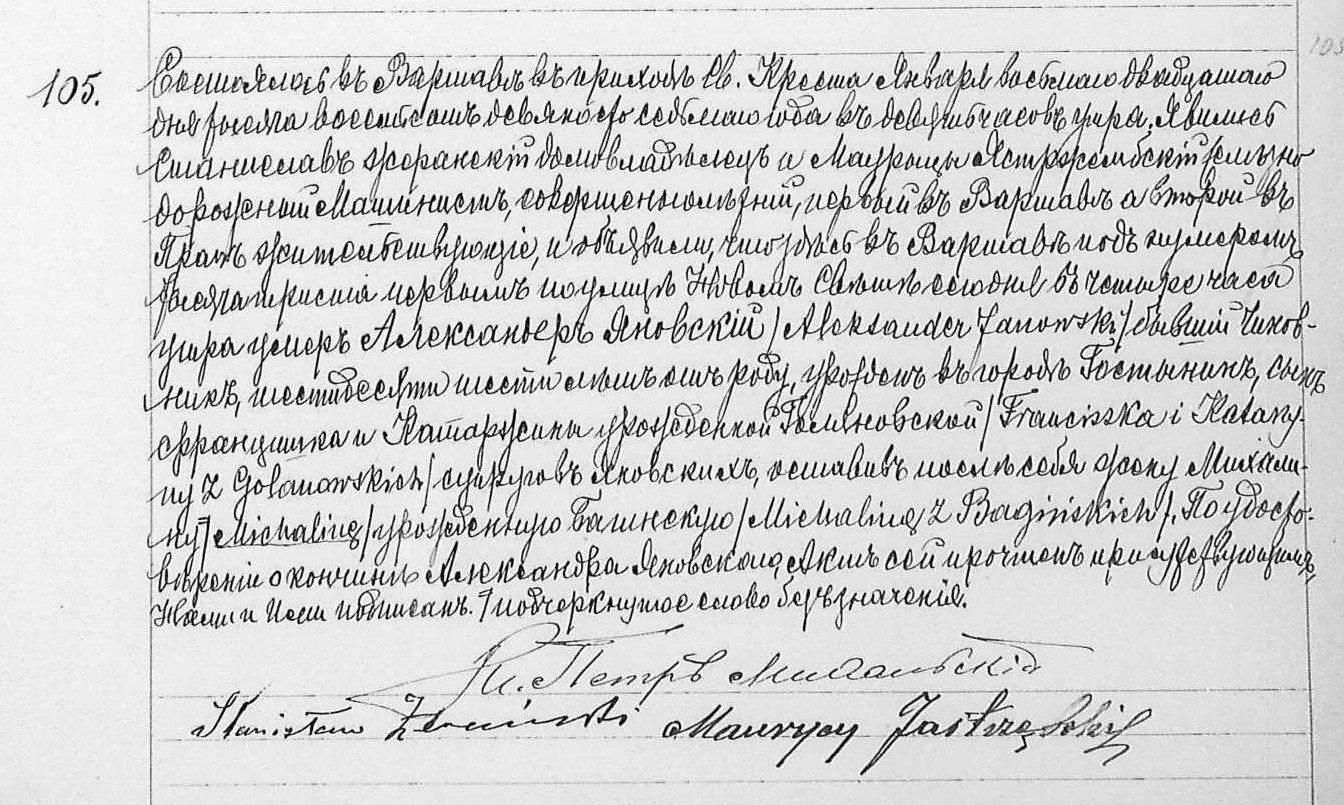 105.
Состоялось въ Варшавѣ въ приходѣ Св. Креста Января восьмаго двадцатаго
дня тысяча восемьсотъ девяносто седьмаго года въ девять часовъ утра. Явились
Станиславъ Жеранскій домовладѣлецъ и Маурыцы Ястржембскій желѣзно
дорожный Машинистъ, совершеннолѣтніи, первый въ Варшавѣ а второй въ
Прагѣ жительствующіе, и объявили, что здѣсь въ Варшавѣ подъ нумеромъ
тысяча триста первымъ по улицѣ Новомъ Свѣтѣ сегодня въ четыре часа
утра умеръ Александеръ Яновскій /Aleksander Janowski/ бывшій Чинов-
никъ, шестидесяти шести лѣтъ отъ роду, урожденъ въ городѣ Гостынинѣ, сынъ
Францишка и Катаржины урожденной Голяновской /Franciszka i Katarzy-
ny z Golanowskich/ супруговъ Яновскихъ, оставивъ послѣ себя жену Михали-
ну /Michalinę/ урожденную Багинскую /Michalinę z Bagińskich/. По удосто-
вѣреніи о кончинѣ Александра Яновскаго, Актъ сей прочтенъ присутствующимъ,
Нами и Ими подписанъ. Подчеркнутое слово безъ значенія.
Кс. Петръ
Stanisław Maurycy Jastrzębski